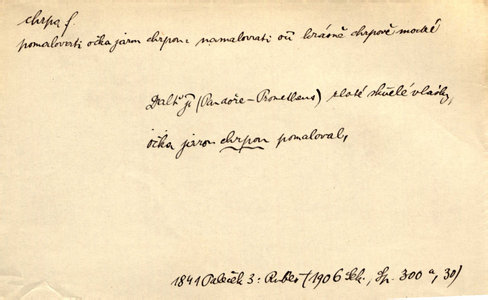 chrpa f.
pomalovati očka jarou chrpou: namalovati oči krásně chrpově modré
Dal jí (Pandoře – Prometheus) zlaté skvělé vlásky,
očka jarou chrpou pomaloval,
1841 Paleček 3: Rubeš (1906 Sek., Sp. 300 a, 30)